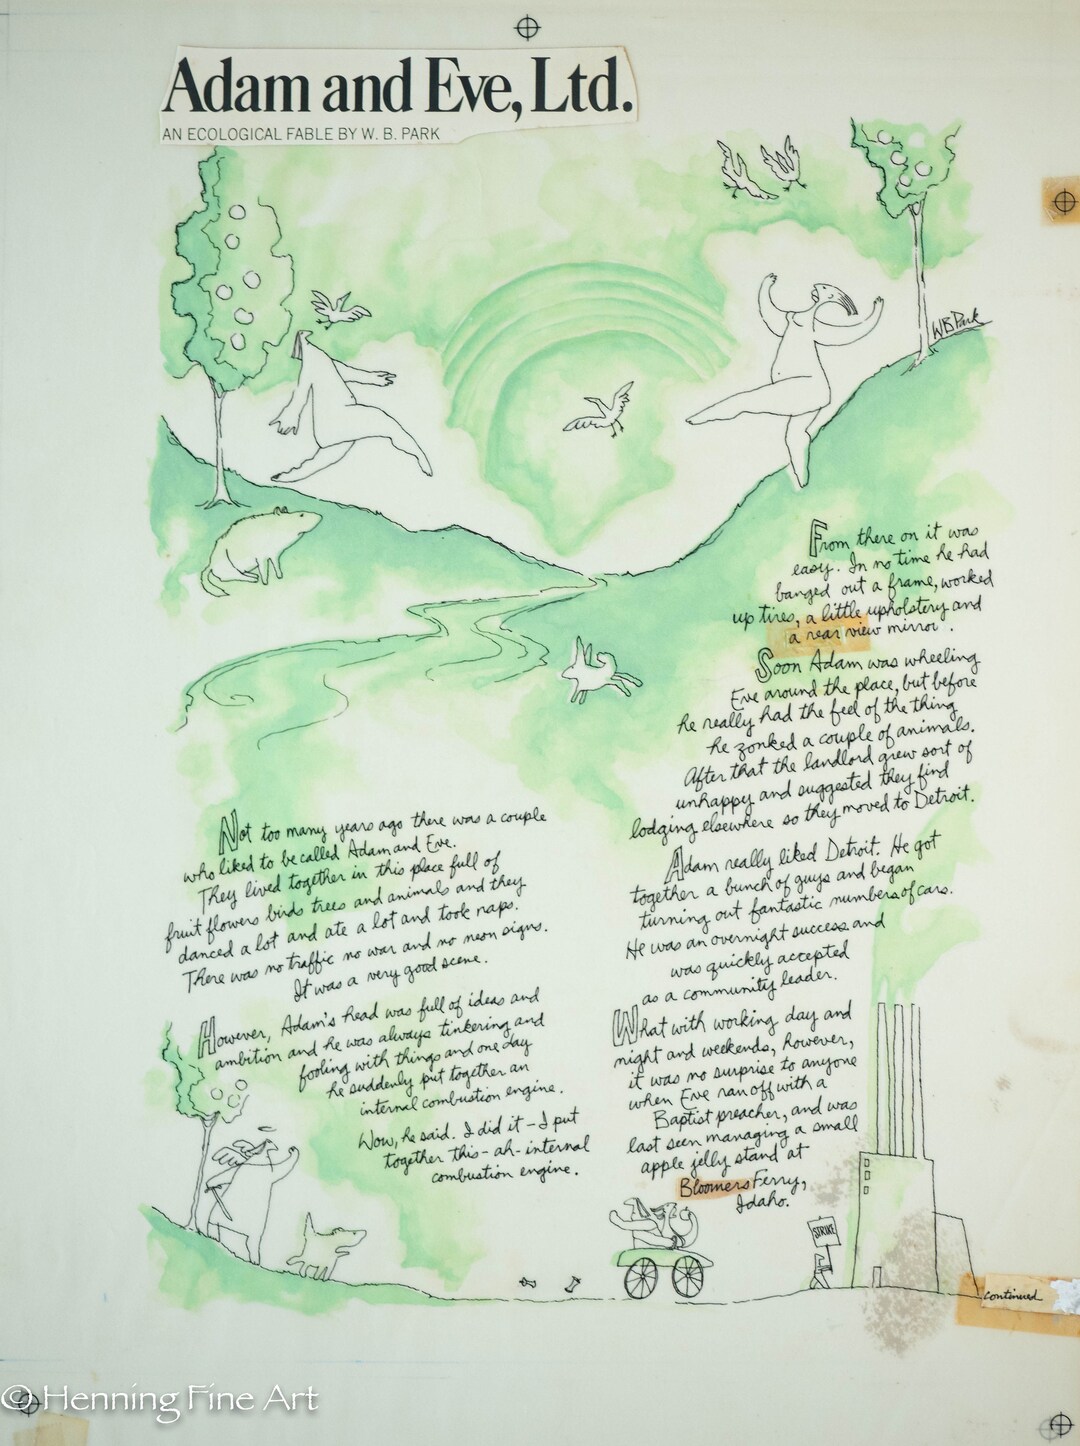 Adam and Eve, Ltd.
AN ECOLOGICAL FABLE BY W. B. PARK
WBPark
Not too many years ago there was a couple
who liked to be called Adam and Eve.
They lived together in this place full of
fruit flowers birds trees and animals and they
danced a lot and ate a lot and took naps.
There was no traffic no war and no neon signs.
It was a very good scene.
However, Adam's head was full of ideas and
ambition and he was always tinkering and
fooling with things and one day
he suddenly put together an
internal combustion engine.
Wow, he said. I did it – I put
together this – ah – internal
combustion engine.
From there on it was
easy. In no time he had
banged out a frame, worked
up tires, a little upholstery and
a rear view mirror.
Soon Adam was wheeling
Eve around the place, but before
he really had the feel of the thing
he zonked a couple of animals.
After that the landlord grew sort of
unhappy and suggested they find
lodging elsewhere so they moved to Detroit.
Adam really liked Detroit. He got
together a bunch of guys and began
turning out fantastic numbers of cars.
He was an overnight success and
was quickly accepted
as a community leader.
What with working day and
night and weekends, however,
it was no surprise to anyone
when Eve ran off with a
Baptist preacher, and was
last seen managing a small
apple jelly stand at
Bloomers Ferry,
Idaho.
STRIKE
continued
© Henning Fine Art